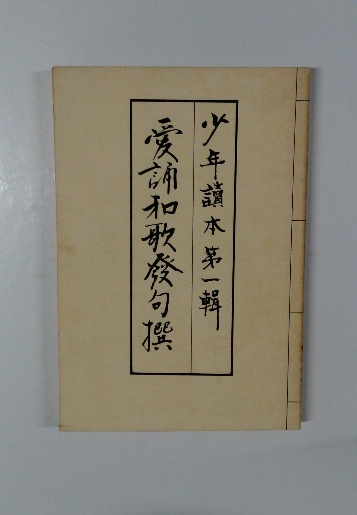 少年讀本第一輯
愛誦和歌發句撰